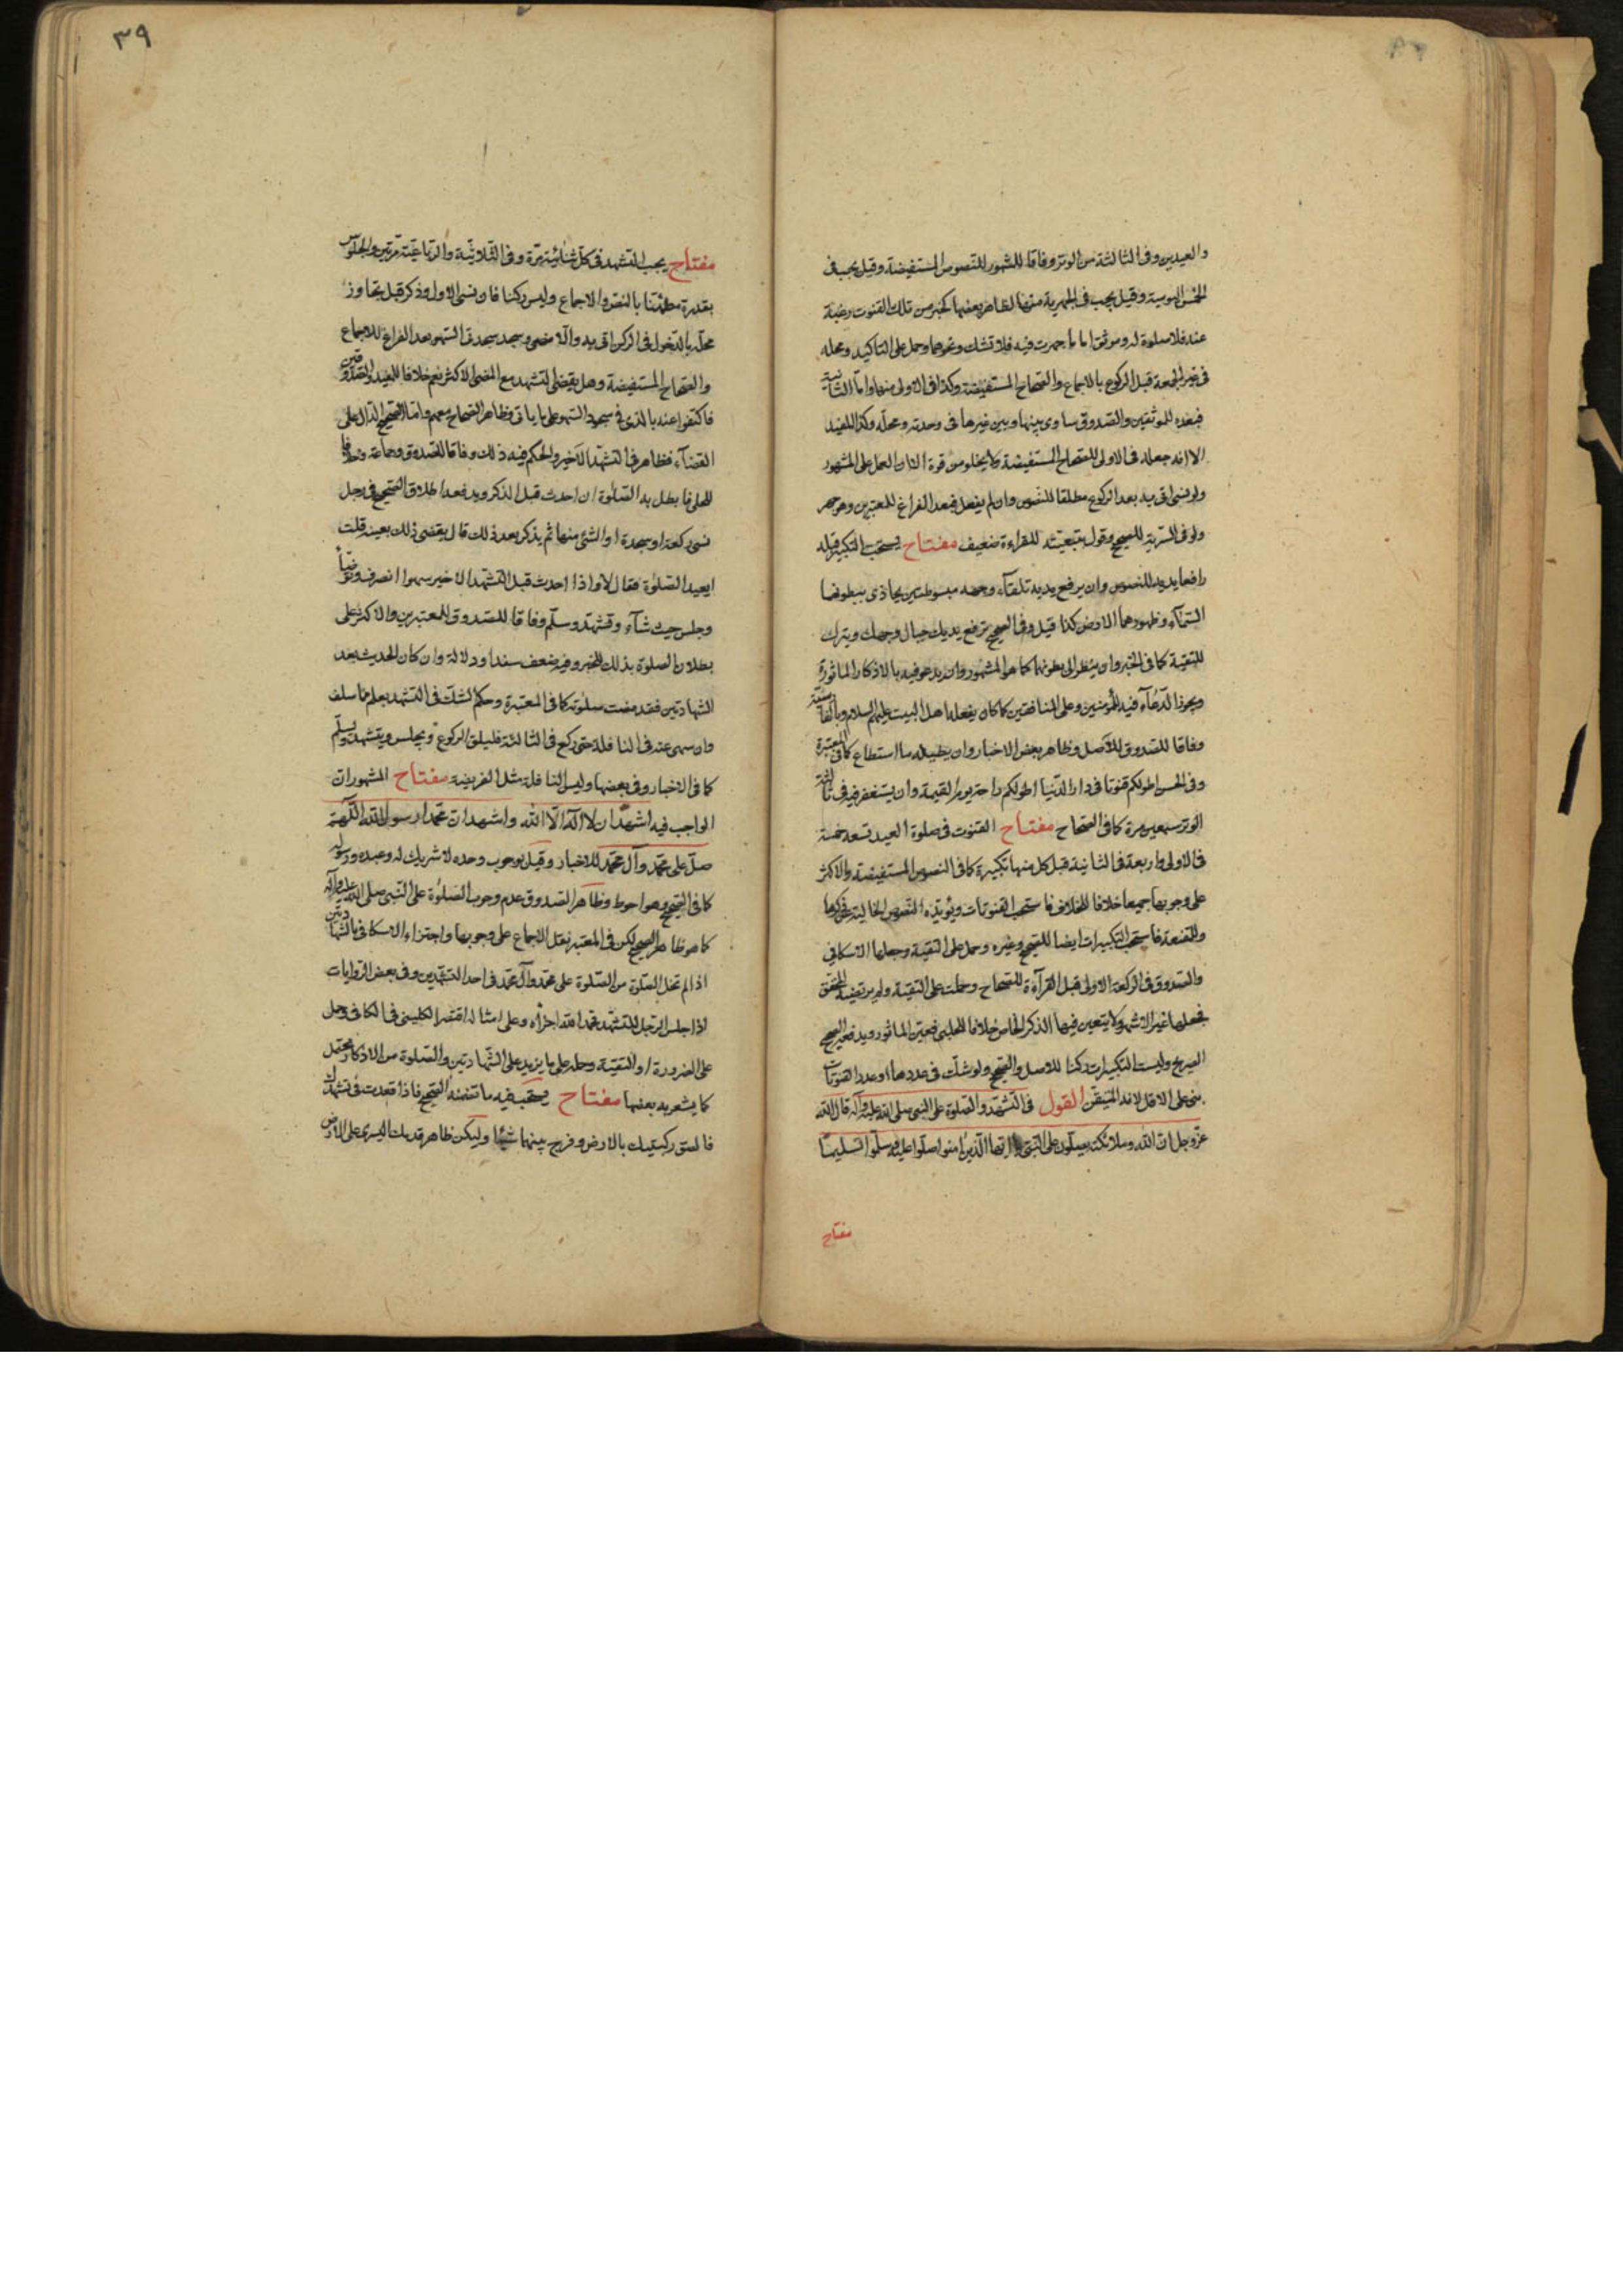 والعيدين وفى الثالثة من الوتر وفاقا للمشهور للنصوص المستفيضة وقيل يجب فى
الخمس اليومية وقيل يجب فى الجهرية منها لظاهر بعضها كخبر من ترك القنوت رغبة
عنه فلا صلوة له وموثق اما ما جهرت فيه فلا تشك ونحوهما وحمل على التاكيد ومحله
فى غير الجمعة قبل الركوع بالاجماع والصحاح المستفيضة وكذا فى الاولى منها واما الثانية
فبعده للموثقين والصدوق ساوى بينها وبين غيرها فى وحدته ومحله وكذا المفيد
الا انه جعله فى الاولى للصحاح المستفيضة ولا يخلو من قوة الا ان العمل على المشهور
ولو نسى اتى به بعد الركوع مطلقا للنصوص وان لم يفعل فبعد الفراغ للمعتبرين وهو جهر
ولو فى السرية للصحيح وقول بتبعيته للقراءة ضعيف مفتاح يستحب التكبير قبله
رافعا يديه للنصوص وان يرفع يديه تلقاء وجهه مبسوطتين يحاذى ببطونهما
السماء وظهورهما الارض كذا قيل وفى الصحيح ترفع يديك حيال وجهك ويترك
للتقية كما فى الخبر وان ينظر الى بطونهما كما هو المشهور وان يدعو فيه بالاذكار الماثورة
ويجوز الدعاء فيه للمؤمنين وعلى المنافقين كما كان يفعله اهل البيت عليهم السلام وبالفارسية
وفاقا للصدوق للاصل وظاهر بعض الاخبار وان يطيله ما استطاع كما فى المعتبرة
وفى الحسن اطولكم قنوتا فى دار الدنيا اطولكم راحة يوم القيمة وان يستغفر فيه فى ثالثة
الوتر سبعين مرة كما فى الصحاح مفتاح القنوت فى صلوة العيد تسعة خمسة
فى الاولى واربعة فى الثانية قبل كل منها تكبيرة كما فى النصوص المستفيضة والاكثر
على وجوبها جميعا خلافا للخلاف فاستحب القنوتات ويؤيده النصوص الخالية عن ذكرها
وللمقنعة فاستحب التكبيرات ايضا للصحيح وغيره وحمل على التقية وجعلها الاسكافي
والصدوق فى الركعة الاولى قبل القرآءة للصحاح وحملت على التقية ولم يرتضيه المحقق
فجعلها غير الاشهر ولا يتعين فيها الذكر الخاص خلافا للحلبى فعين الماثور ويدفعه الصحيح
الصريح وليست التكبيرات ركنا للاصل والصحيح ولو شك فى عددها او عدد القنوتات
بنى على الاقل لانه المتيقن القول فى التشهد والصلوة على النبى صلى الله عليه وآله قال الله
عز وجل ان الله وملائكته يصلون على النبى يا ايها الذين امنوا صلوا عليه وسلموا تسليما
مفتاح
٣٩
مفتاح يجب التشهد فى كل ثنائية مرة وفى الثلاثية والرباعية مرتين والجلوس
بقدره مطمئنا بالنص والاجماع وليس ركنا فان نسى الاول وذكر قبل تجاوز
محله بالدخول فى الركن اتى به والا مضى وسجد سجدتى السهو بعد الفراغ للاجماع
والصحاح المستفيضة وهل يقضى التشهد مع المضى الاكثر نعم خلافا للمفيد والصدوقين
فاكتفوا عنه بالذى فى سجود السهو على ما ياتى وظاهر الصحاح معهم واما الصحيح الدال على
القضآء فظاهر فى التشهد الاخير والحكم فيه ذلك وفاقا للصدوق وجماعة وخلافا
للحلى فابطل به الصلوة ان احدث قبل الذكر ويدفعه اطلاق الصحيح فى رجل
نسى ركعة او سجدة او الشئ منها ثم يذكر بعد ذلك قال يقضى ذلك بعينه قلت
ايعيد الصلوة فقال لا واذا احدث قبل التشهد الاخير سهوا انصرف وتوضأ
وجلس حيث شآء وتشهد وسلم وفاقا للصدوق للمعتبرين والاكثر على
بطلان الصلوة بذلك للخبر وفيه ضعف سندا ودلالة وان كان الحديث بعد
الشهادتين فقد مضت صلوته كما فى المعتبرة وحكم الشك فى التشهد يعلم مما سلف
وان سهى عنه فى النافلة حتى ركع فى الثالثة فليلق الركوع ويجلس ويتشهد ويسلم
كما فى الاخبار وفى بعضها وليس النافلة مثل الفريضة مفتاح المشهور ان
الواجب فيه اشهد ان لا اله الا الله واشهد ان محمدا رسول الله اللهم
صل على محمد وآل محمد للاخبار وقيل بوجوب وحده لا شريك له وعبده ورسوله
كما فى الصحيح وهو احوط وظاهر الصدوق عدم وجوب الصلوة على النبى صلى الله عليه وآله
كما هو ظاهر الصحيح لكن فى المعتبر نقل الاجماع على وجوبها واجتزاء الاسكافى بالشهادتين
اذا لم تخل الصلوة من الصلوة على محمد وآل محمد فى احد التشهدين وفى بعض الروايات
اذا جلس الرجل للتشهد فحمد الله اجزأه وعلى امثاله اقتصر الكلينى فى الكافى وحمل
على الضرورة او التقية وحمله على ما يزيد على الشهادتين والصلوة من الاذكار محتمل
كما يشعر به بعضها مفتاح يستحب فيه ما تضمنه الصحيح فاذا قعدت فى تشهدك
فالصق ركبتيك بالارض وفرج بينهما شيئا وليكن ظاهر قدمك اليسرى على الارض